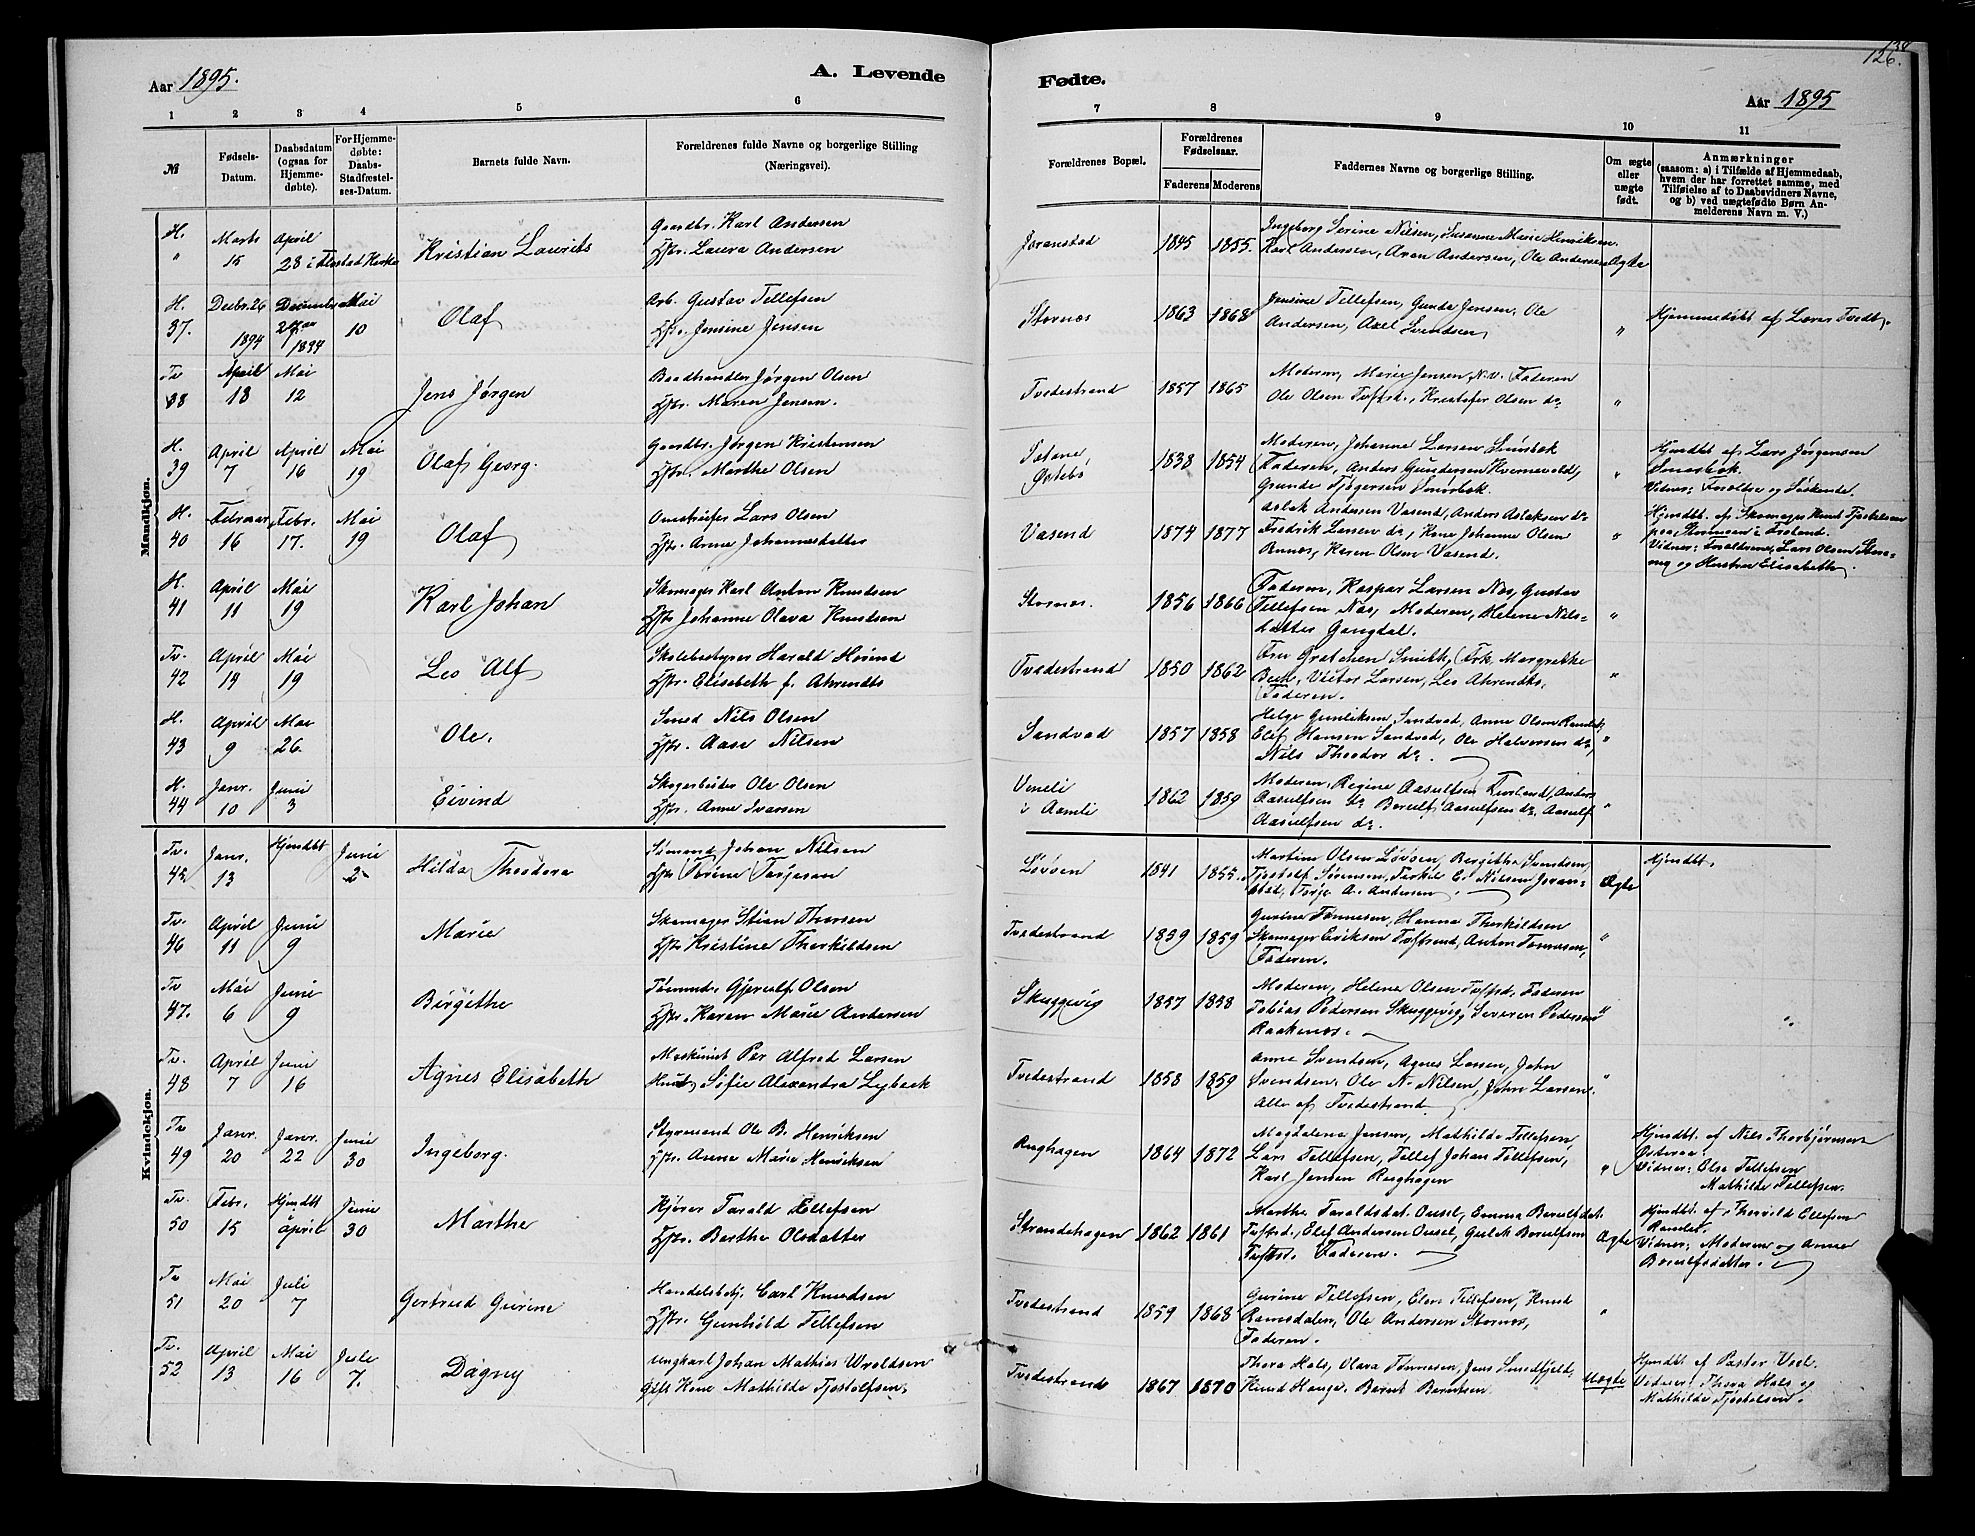 Aar 1895.
A. Levende
Fødte.
126.
Aar 1895
1 2 3 4 5 6 7 8 9 10 11
№
Fødsels-Datum.
Daabsdatum (ogsaa for Hjemmedøbte).
For Hjemmedøbte: Daabs-Stadfæstelses-Datum.
Barnets fulde Navn.
Forældrenes fulde Navne og borgerlige Stilling
(Næringsvei).
Forældrenes Bopæl.
Forældrenes Fødselsaar.
Faderens Moderens
Faddernes Navne og borgerlige Stilling.
Om ægte eller uægte født.
Anmærkninger
(saasom: a) i Tilfælde af Hjemmedaab,
hvem der har forrettet samme, med
Tilføielse af to Daabsvidners Navne,
og b) ved uægtefødte Børn Anmelderens Navn m. V.)
Mandkjøn.
H. " Marts 15 April 28 i Flostad Kirke Kristian Laurits
Gaardbr. Karl Andersen
Hstr. Laura Andersen
Joranstad 1845 1855.
Ingeborg Serine Nilsen, Susanne Marie Henriksen.
Karl Andersen, Aron Andersen, Ole Andersen Ægte
H. 37. Decbr. 26 1894 December 1894 Mai 10 Olaf
Arb. Gustav Tellefsen
Hstr. Jensine Jensen
Stornæs 1863 1868
Jensine Tellefsen, Gunda Jensen, Ole
Andersen, Axel Svendsen "
Hjemmedøbt af Lærer Tvedt.
Tv 38 April 18 Mai 12 Jens Jørgen
Baadhandler Jørgen Olsen
Hstr. Maren Jensen.
Tvedestrand 1857 1865
Moderen, Marie Jensen, Faderen
Ole Olsen Tvstrd., Kristofer Olsen do "
H. 39 April 7 April 16 Mai 19 Olaf Georg.
Gaardbr. Jørgen Kristensen
Hstr. Marthe Olsen
Østebø 1838 1854
Moderen, Johanne Larsen Smørbek
Faderen, Anders Gundersen Kvernevold,
Grunde Tjøgersen Smørbek. "
Hjmdbt af Lars Jørgensen
Smørbek.
Vidner: Forældre og Søskende.
H. 40 Februar 16 Febr. 17. Mai 19 Olaf
Omstreifer Lars Olsen
Hstr. Anne Johannesdatter
Vasend 1874 1877
Aslak Andersen Vasend, Anders Aslaksen do
Fredrik Larsen do, Kone Johanne Olsen
Bunes, Karen Olsen Vasend. "
Hjmdbt. af Skomager Knut Tjøstelsen
paa i Froland.
Vidner: Forældrene, Lars Olsen
og Hustru Elisabeth.
H. 41 April 11 Mai 19 Karl Johan
Skomager Karl Anton Knudsen
Hstr Johanne Olava Knudsen
Stornæs. 1856 1866
Faderen, Kaspar Larsen Næs, Gustav
Tellefsen Næs, Moderen, Helene Nils-
datter Gangdal. "
Tv. 42 April 19 Mai 19 Leo Alf
Skolebestyrer Harald Hvind
Hstr. Elisabeth f. Ahrendts
Tvedestrand 1850 1862
Fru Gretchen Smith, Frk. Margrethe
Beck, Victor Larsen, Leo Ahrendts,
Faderen. "
H. 43 April 9 Mai 26. Ole.
Smed Nils Olsen
Hstr. Aase Nilsen
Sandvad 1857 1858
Helge Gunliksen, Sandvad, Anne Olsen
Elef Hansen Sandvad, Ole Halvorsen do,
Nils Theodor do. "
H. 44 Janr. 10 Juni 3 Eivind
Skogarbeider Ole Olsen
Hstr. Anne Ivarsen
Veneli i Aamli 1862 1859
Moderen, Regine Aasulfsen, Anders
Aasulfsen do Borulf Aasulfsen do, Aasulf
Aasulfsen do. "
Kvindekjøn.
Tv. 45. Janr. 13 Hjmdbt Juni 2 Hilda Theodora
Sømand Johan Nilsen
Hstr Torine Torjesen
Løvøen 1841 1855.
Martine Olsen Løvøen, Bergithe Svendsen,
Tjøstolf Sørensen, Terkel E. Nilsen Joran-
stad, Terje A. Andersen Ægte
Hjmdbt.
Tv. 46 April 11 Juni 9 Marie
Skomager Stian Thorsen
Hstr Kristine Therkildsen
Tvedestrand 1839 1859
Gurine Tønnesen, Hanna Therkildsen
Skomager Eriksen Tvstrand, Anton Tønnesen,
Faderen. "
Tv 47. Mai 6 Juni 9 Birgithe
Tømmerm. Gjerulf Olsen
Hstr. Karen Marie Andersen
Skuggevig 1857 1858
Moderen, Helene Olsen Tvstrd, Faderen
Tobias Pedersen Skuggevig, Severin Pedersen
Raakenæs. "
Tv. 48 April 7 Juni 16 Agnes Elisabeth
Maskinist Per Alfred Larsen
Hust. Sofie Alexandra Lybeck
Tvedestrand 1858 1859
Anna Svendsen, Agnes Larsen, John
Svendsen, Ole N. Nilsen, John Larsen.
Alle af Tvedestrand "
Tv 49 Janr. 20 Janr. 22 Juni 30 Ingeborg.
Styrmand Ole B. Henriksen
Hstr. Anna Marie Henriksen
Rughagen 1864 1872
Magdalena Jensen, Mathilde Tellefsen,
Lars Tellefsen, Tellef Johan Tellefsen,
Karl Jensen Rughagen "
Hjmdbt. af Nils Thorbjørnsen
Østeraa.
Vidner: Else Tellefsen
Mathilde Tellefsen.
Tv. 50 Febr. 15 Hjmdbt April Juni 30 Marthe
Kjører Tarald Ellefsen
Hstr. Berthe Olsdatter
Strandehagen 1862 1861
Marthe Taraldsdat. Oussel, Emma Borulfsdat.
Tvstrd., Elef Andersen Oussel, Gislek Borulfsen
Tvstr. Faderen. Ægte
Hjmdbt. af Thorvild Ellefsen
Ramlet.
Vidner: Moderen og Anne
Borulfsdatter.
Tv 51 Mai 20 Juli 7 Gertrud Gurine
Handelsbetj. Carl Knudsen
Hstr. Gunhild Tellefsen
Tvedestrand 1859 1868
Gurine Tellefsen, Elen Tellefsen, Knud
Ramsdalen, Ole Andersen Stornæs,
Faderen. "
Tv. 52 April 13 Mai 16 Juli 7. Dagny
Ungkarl Johan Mathias Wroldsen
Gift Kone Mathilde Tjøstolfsen.
Tvedestrand 1867 1870
Thora Hals, Olava Tønnesen, Jens Sundfjeld,
Knud Hauge, Bernt Berntsen. Uægte
Hjmdbt af Pastor Veel.
Vidner: Thora Hals og
Mathilde Tjøstelsen.